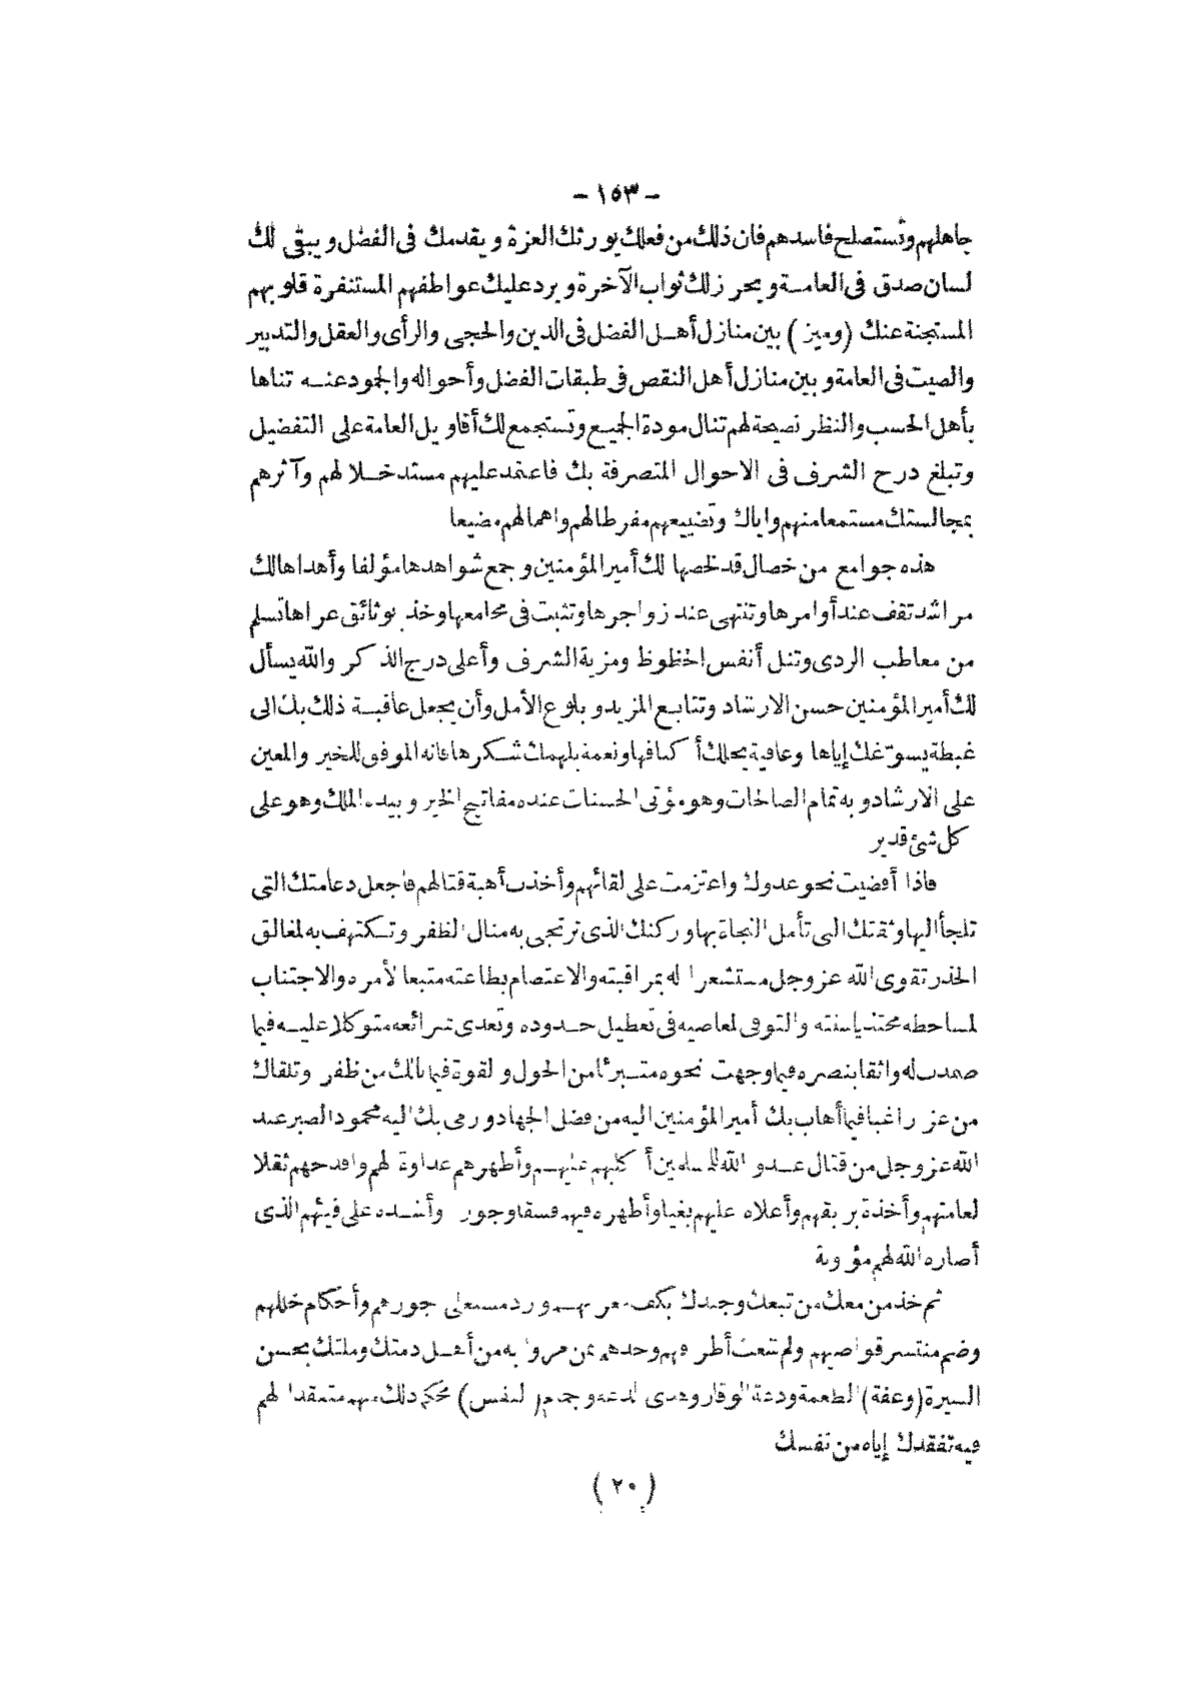 - ١٥٣ -
جاهلهم وتستصلح فاسدهم فان ذلك من فعلك يورثك العزة ويقدمك فى الفضل ويبقى لك
لسان صدق فى العامة ويحرز لك ثواب الآخرة ويرد عليك عواطفهم المستنفرة قلوبهم
المستجنة عنك (وميز) بين منازل أهل الفضل فى الدين والحجى والرأى والعقل والتدبير
والصيت فى العامة وبين منازل أهل النقص فى طبقات الفضل وأحواله والجمود عنه تناها
بأهل الحسب والنظر نصيحة لهم تنال مودة الجميع وتستجمع لك أقاويل العامة على التفضيل
وتبلغ درح الشرف فى الاحوال المتصرفة بك فاعتمد عليهم مستدخلا لهم وآثرهم
بمجالستك مستمعا منهم واياك وتضييعهم مفرطا لهم واهمالهم مضيعا
هذه جوامع من خصال قد لخصها لك أمير المؤمنين وجمع شواهدها مؤلفا وأهداها لك
مراشد تقف عند أوامرها وتنتهى عند زواجرها وتثبت فى مجامعها وخذ بوثائق عراها تسلم
من معاطب الردى وتنل أنفس الحظوظ ومزية الشرف وأعلى درج الذكر والله يسأل
لك أمير المؤمنين حسن الارشاد وتتابع المزيد وبلوغ الأمل وأن يجعل عاقبة ذلك بك الى
غبطة يسوّغك إياها وعافية يحلك أكنافها ونعمة يلهمك شكرها فانه الموفق للخير والمعين
على الارشاد وبه تمام الصالحات وهو مؤتى الحسنات عنده مفاتيح الخير وبيده الملك وهو على
كل شئ قدير
فاذا أفضيت نحو عدوك واعتزمت على لقائهم وأخذت أهبة قتالهم فاجعل دعامتك التى
تلجأ اليها وثقتك التى تأمل النجاة بها وركنك الذى ترتجى به منال الظفر وتكتهف به لمغالق
الحذر تقوى الله عز وجل مستشعرا له بمراقبته والاعتصام بطاعته متبعا لأمره والاجتناب
لمساخطه محتذيا سنته والتوقى لمعاصيه فى تعطيل حدوده وتعدى شرائعه متوكلا عليه فيما
صمدت له واثقا بنصره فيما وجهت نحوه متبرئا من الحول والقوة فيما نالك من ظفر وتلقاك
من عز راغبا فيما أهاب بك أمير المؤمنين اليه من فضل الجهاد ورمى بك اليه محمود الصبر عند
الله عز وجل من قتال عدو الله للمسلمين أكلبهم عليهم وأظهرهم عداوة لهم وافدحهم ثقلا
لعامتهم وأخذه بربقهم وأعلاه عليهم بغيا وأظهره فيهم فسقا وجورا وأشده على فيئهم الذى
أصاره الله لهم مؤونة
ثم خذ من معك من تبعك وجندك بكف معرتهم ورد مستعلى جورهم وأحكام خللهم
وضم منتشر قواصيهم ولم شعث أطرافهم وحدهم عمن مروا به من أهل ذمتك وملتك بحسن
السيرة (وعفة) الطعمة ودعة الوقار وهدى الدعة وجمام (النفس) محكم ذلك منهم متفقدا لهم
فيه تفقدك إياه من نفسك
( ٢٠ )